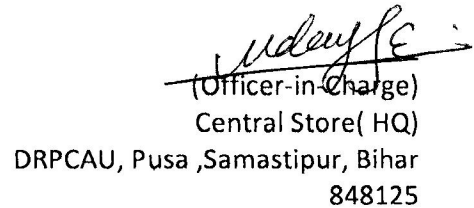 (Officer-in-Charge)
Central Store( HQ)
DRPCAU, Pusa ,Samastipur, Bihar
848125